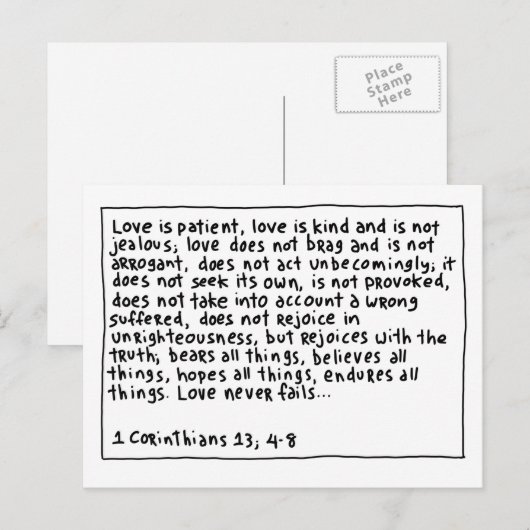 Place
Stamp
Here
Love is patient, love is kind and is not
jealous; love does not brag and is not
arrogant, does not act unbecomingly; it
does not seek its own, is not provoked,
does not take into account a wrong
suffered, does not rejoice in
unrighteousness, but rejoices with the
truth; bears all things, believes all
things, hopes all things, endures all
things. Love never fails...
1 Corinthians 13; 4-8